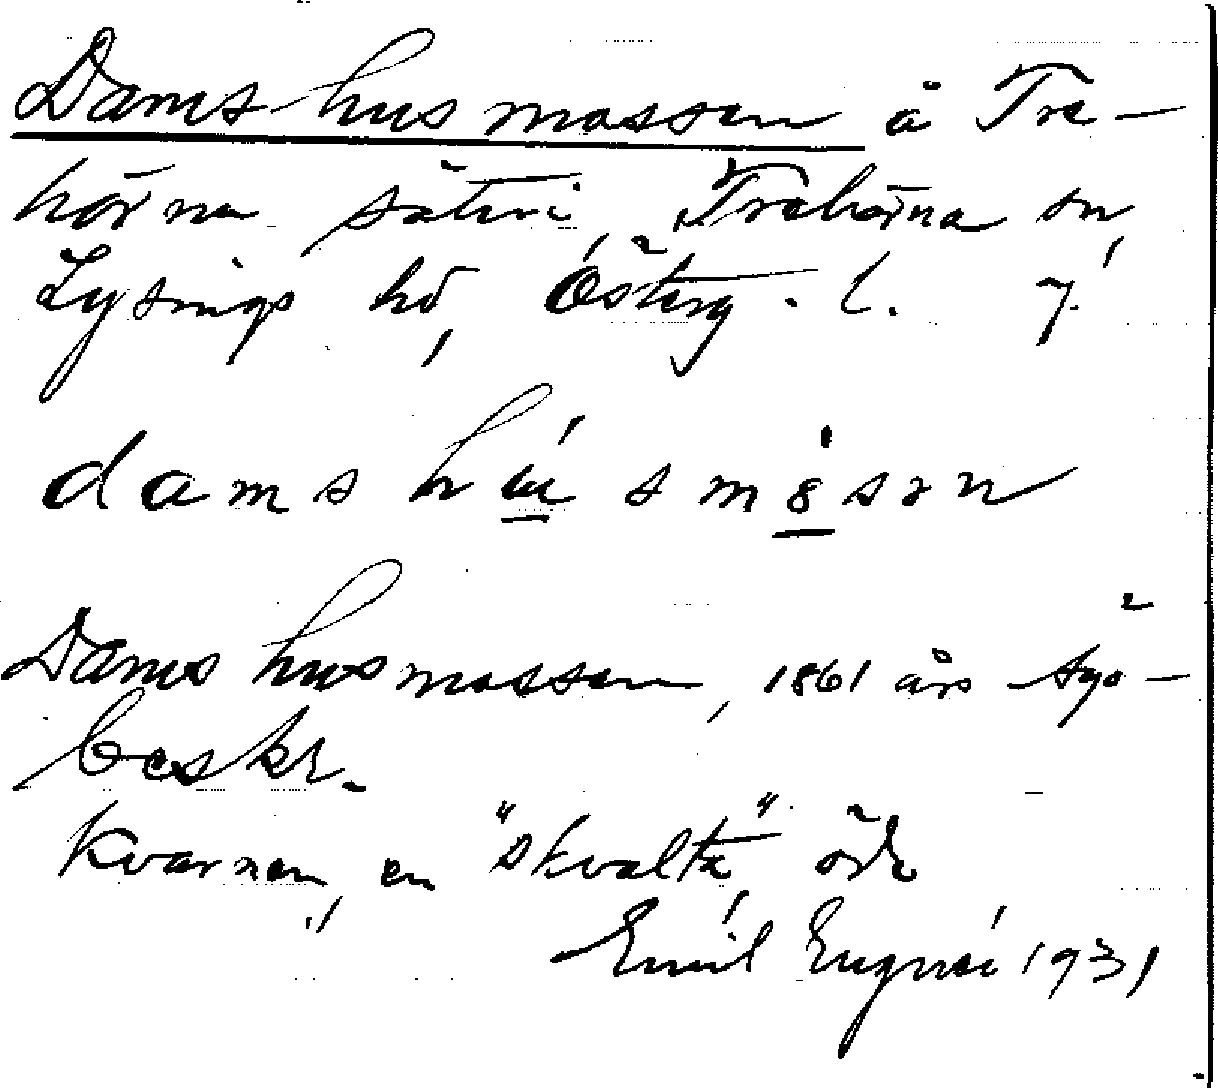 Damshusmossen å Tre-
hörna säteri, Trehörna sn,
Lysings hd, Österg. l. 7.
damshusmosən
Damshusmossen, 1861 års ägo-
beskr.
Kvarnen, en "skvalta", öde
Emil 1931